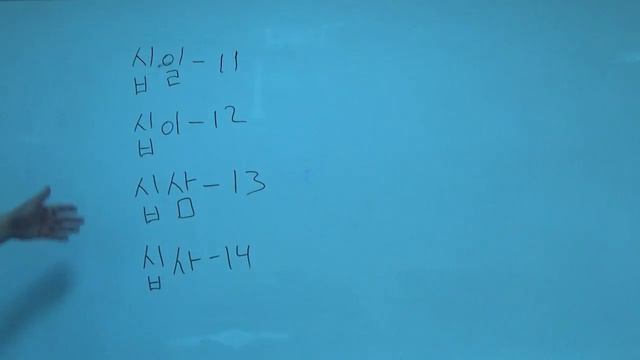 십일 - 11
십이 - 12
십삼 - 13
십사 - 14